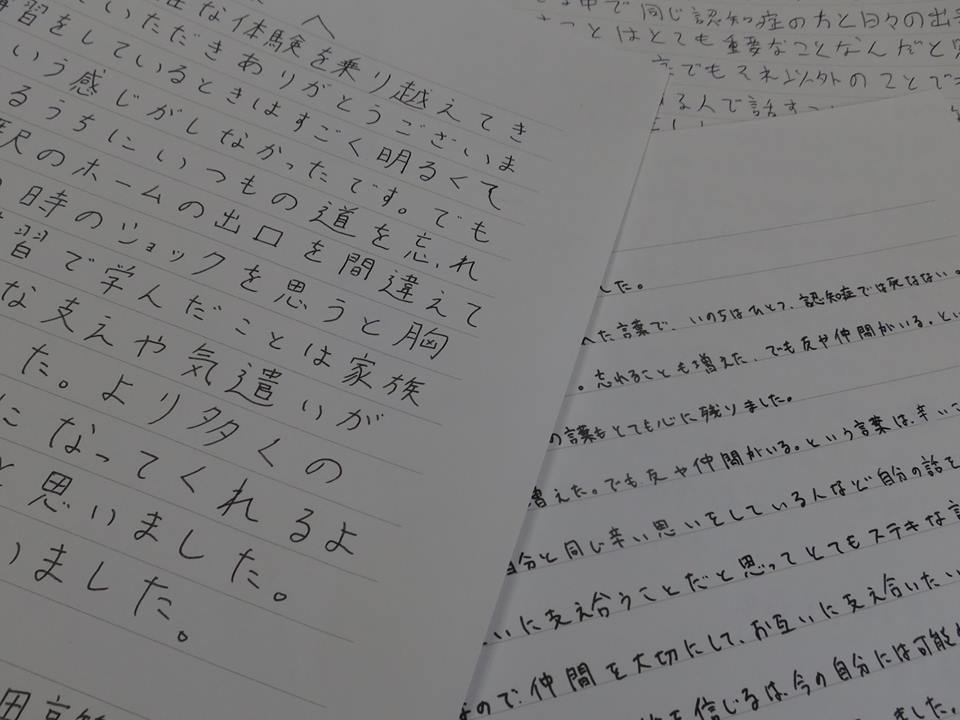 へ
な体験を乗り越えてき
いただきありがとうございま
講習をしているときはすごく明るくて
いう感じがしなかったです。でも
るうちにいつもの道を忘れ
駅のホームの出口を間違えて
時のショックを思うと胸
習で学んだことは家族
な支えや気遣いが
た。より多くの
になってくれるよ
と思いました。
いました。
中で同じ認知症の方と日々の出
ことはとても重要なことなんだと
でもマネ以外のことで
る人で話す
した。
た言葉で、いのちはひとつ、認知症では死なない。
。忘れることも増えた、でも友や仲間がいる。とい
の言葉もとても心に残りました。
増えた。でも友や仲間がいる。という言葉は、辛い
自分と同じ辛い思いをしている人など自分の話を
いに支え合うことだと思ってとてもステキな言
なので、仲間を大切にして、お互いに支え合いたい
を信じるは、今の自分には可能
ました。